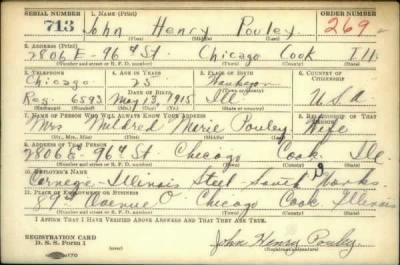 SERIAL NUMBER 1. NAME (Print) ORDER NUMBER
713 John Henry Pouley 269
(First) (Middle) (Last)
2. ADDRESS (Print)
2806 E - 96th St. Chicago Cook Ill.
(Number and street or R. F. D. number) (Town) (County) (State)
3. TELEPHONE 4. AGE IN YEARS 5. PLACE OF BIRTH 6. COUNTRY OF CITIZENSHIP
Chicago 25 Waukegan
DATE OF BIRTH (Town or county)
Reg. 6593 May 13, 1915 Ill. U.S.A
(Exchange) (Number) (Mo.) (Day) (Yr.) (State or country)
7. NAME OF PERSON WHO WILL ALWAYS KNOW YOUR ADDRESS 8. RELATIONSHIP OF THAT PERSON
Mrs Mildred Marie Pouley Wife
(Mr., Mrs., Miss) (First) (Middle) (Last)
9. ADDRESS OF THAT PERSON
2806 E - 96th St. Chicago Cook. Ill.
(Number and street or R. F. D. number) (Town) (County) (State)
10. EMPLOYER'S NAME
Carnegie Illinois Steel South Works.
11. PLACE OF EMPLOYMENT OR BUSINESS
89th Avenue O Chicago Cook Illinois
(Number and street or R. F. D. number) (Town) (County) (State)
I AFFIRM THAT I HAVE VERIFIED ABOVE ANSWERS AND THAT THEY ARE TRUE.
REGISTRATION CARD
D. S. S. Form 1 John Henry Pouley